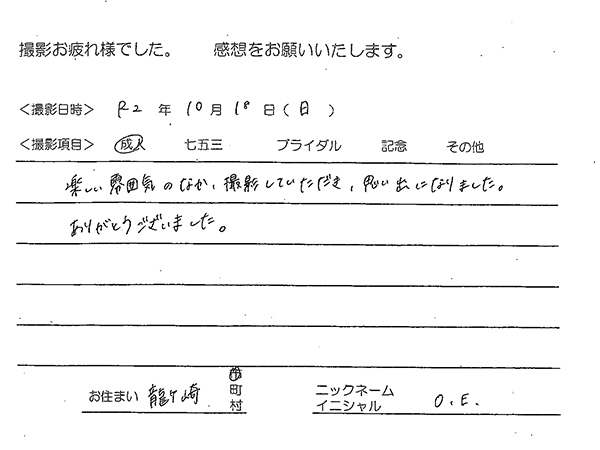 撮影お疲れ様でした。 感想をお願いいたします。
<撮影日時> R2 年 10 月 18 日(日)
<撮影項目> 成人 七五三 ブライダル 記念 その他
楽しい雰囲気のなか、撮影していただき、思い出になりました。
ありがとうございました。
お住まい 龍ケ崎 市
町
村
ニックネーム
イニシャル O.E.